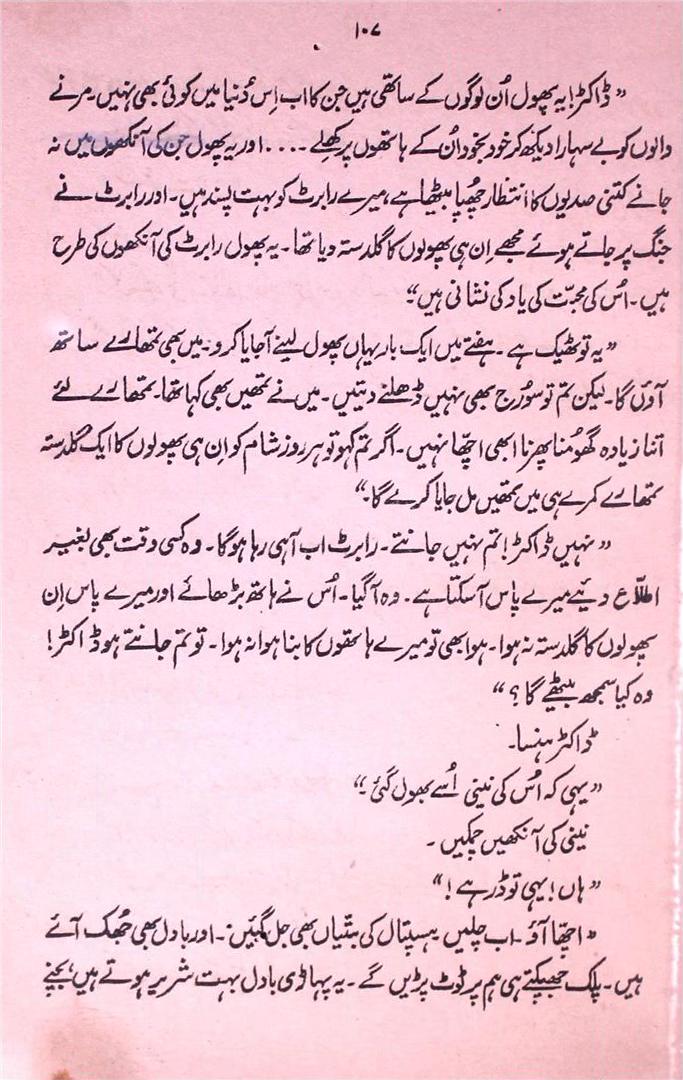 ۱۰۷
”ڈاکٹر! یہ پھول اُن لوگوں کے ساتھی ہیں جن کا اب اِس دُنیا میں کوئی بھی نہیں۔ مرنے
والوں کو بے سہارا دیکھ کر خود بخود اُن کے ہاتھوں پر کھِلے .... اور یہ پھول جن کی آنکھوں میں نہ
جانے کتنی صدیوں کا انتظار چھُپا بیٹھا ہے، میرے رابرٹ کو بہت پسند ہیں۔ اور رابرٹ نے
جنگ پر جاتے ہوئے مجھے اِن ہی پھولوں کا گلدستہ دیا تھا۔ یہ پھول رابرٹ کی آنکھوں کی طرح
ہیں۔ اُس کی محبّت کی یاد کی نشانی ہیں“
”یہ تو ٹھیک ہے۔ ہفتے میں ایک بار یہاں پھول لینے آجایا کرو۔ میں بھی تمھارے ساتھ
آؤں گا۔ لیکن تم تو سُورج بھی نہیں ڈھلنے دیتیں۔ میں نے تمھیں بھی کہا تھا۔ تمھارے لئے
اتنا زیادہ گھُومنا پھرنا ابھی اچھّا نہیں۔ اگر تم کہو تو ہر روز شام کو اِن ہی پھولوں کا ایک گلدستہ
تمھارے کمرے ہی میں تمھیں مل جایا کرے گا۔“
”نہیں ڈاکٹر! تم نہیں جانتے۔ رابرٹ اب آہی رہا ہوگا۔ وہ کسی وقت بھی بغیر
اطلّاع دیئے میرے پاس آسکتا ہے۔ وہ آگیا۔ اُس نے ہاتھ بڑھائے اور میرے پاس اِن
پھولوں کا گلدستہ نہ ہوا۔ ہوا بھی تو میرے ہاتھوں کا بنا ہوا نہ ہوا۔ تو تم جانتے ہو ڈاکٹر!
وہ کیا سمجھ بیٹھے گا؟“
ڈاکٹر ہنسا۔
”یہی کہ اُس کی نینی اُسے بھول گئی۔“
نینی کی آنکھیں چمکیں۔
”ہاں! یہی تو ڈر ہے!“
”اچھّا آؤ۔ اب چلیں ہسپتال کی بتّیاں بھی جل گئیں۔ اور بادل بھی جھُک آئے
ہیں۔ پلک جھپکتے ہی ہم پر ٹوٹ پڑیں گے۔ یہ پہاڑی بادل بہت شریر ہوتے ہیں، بچنے